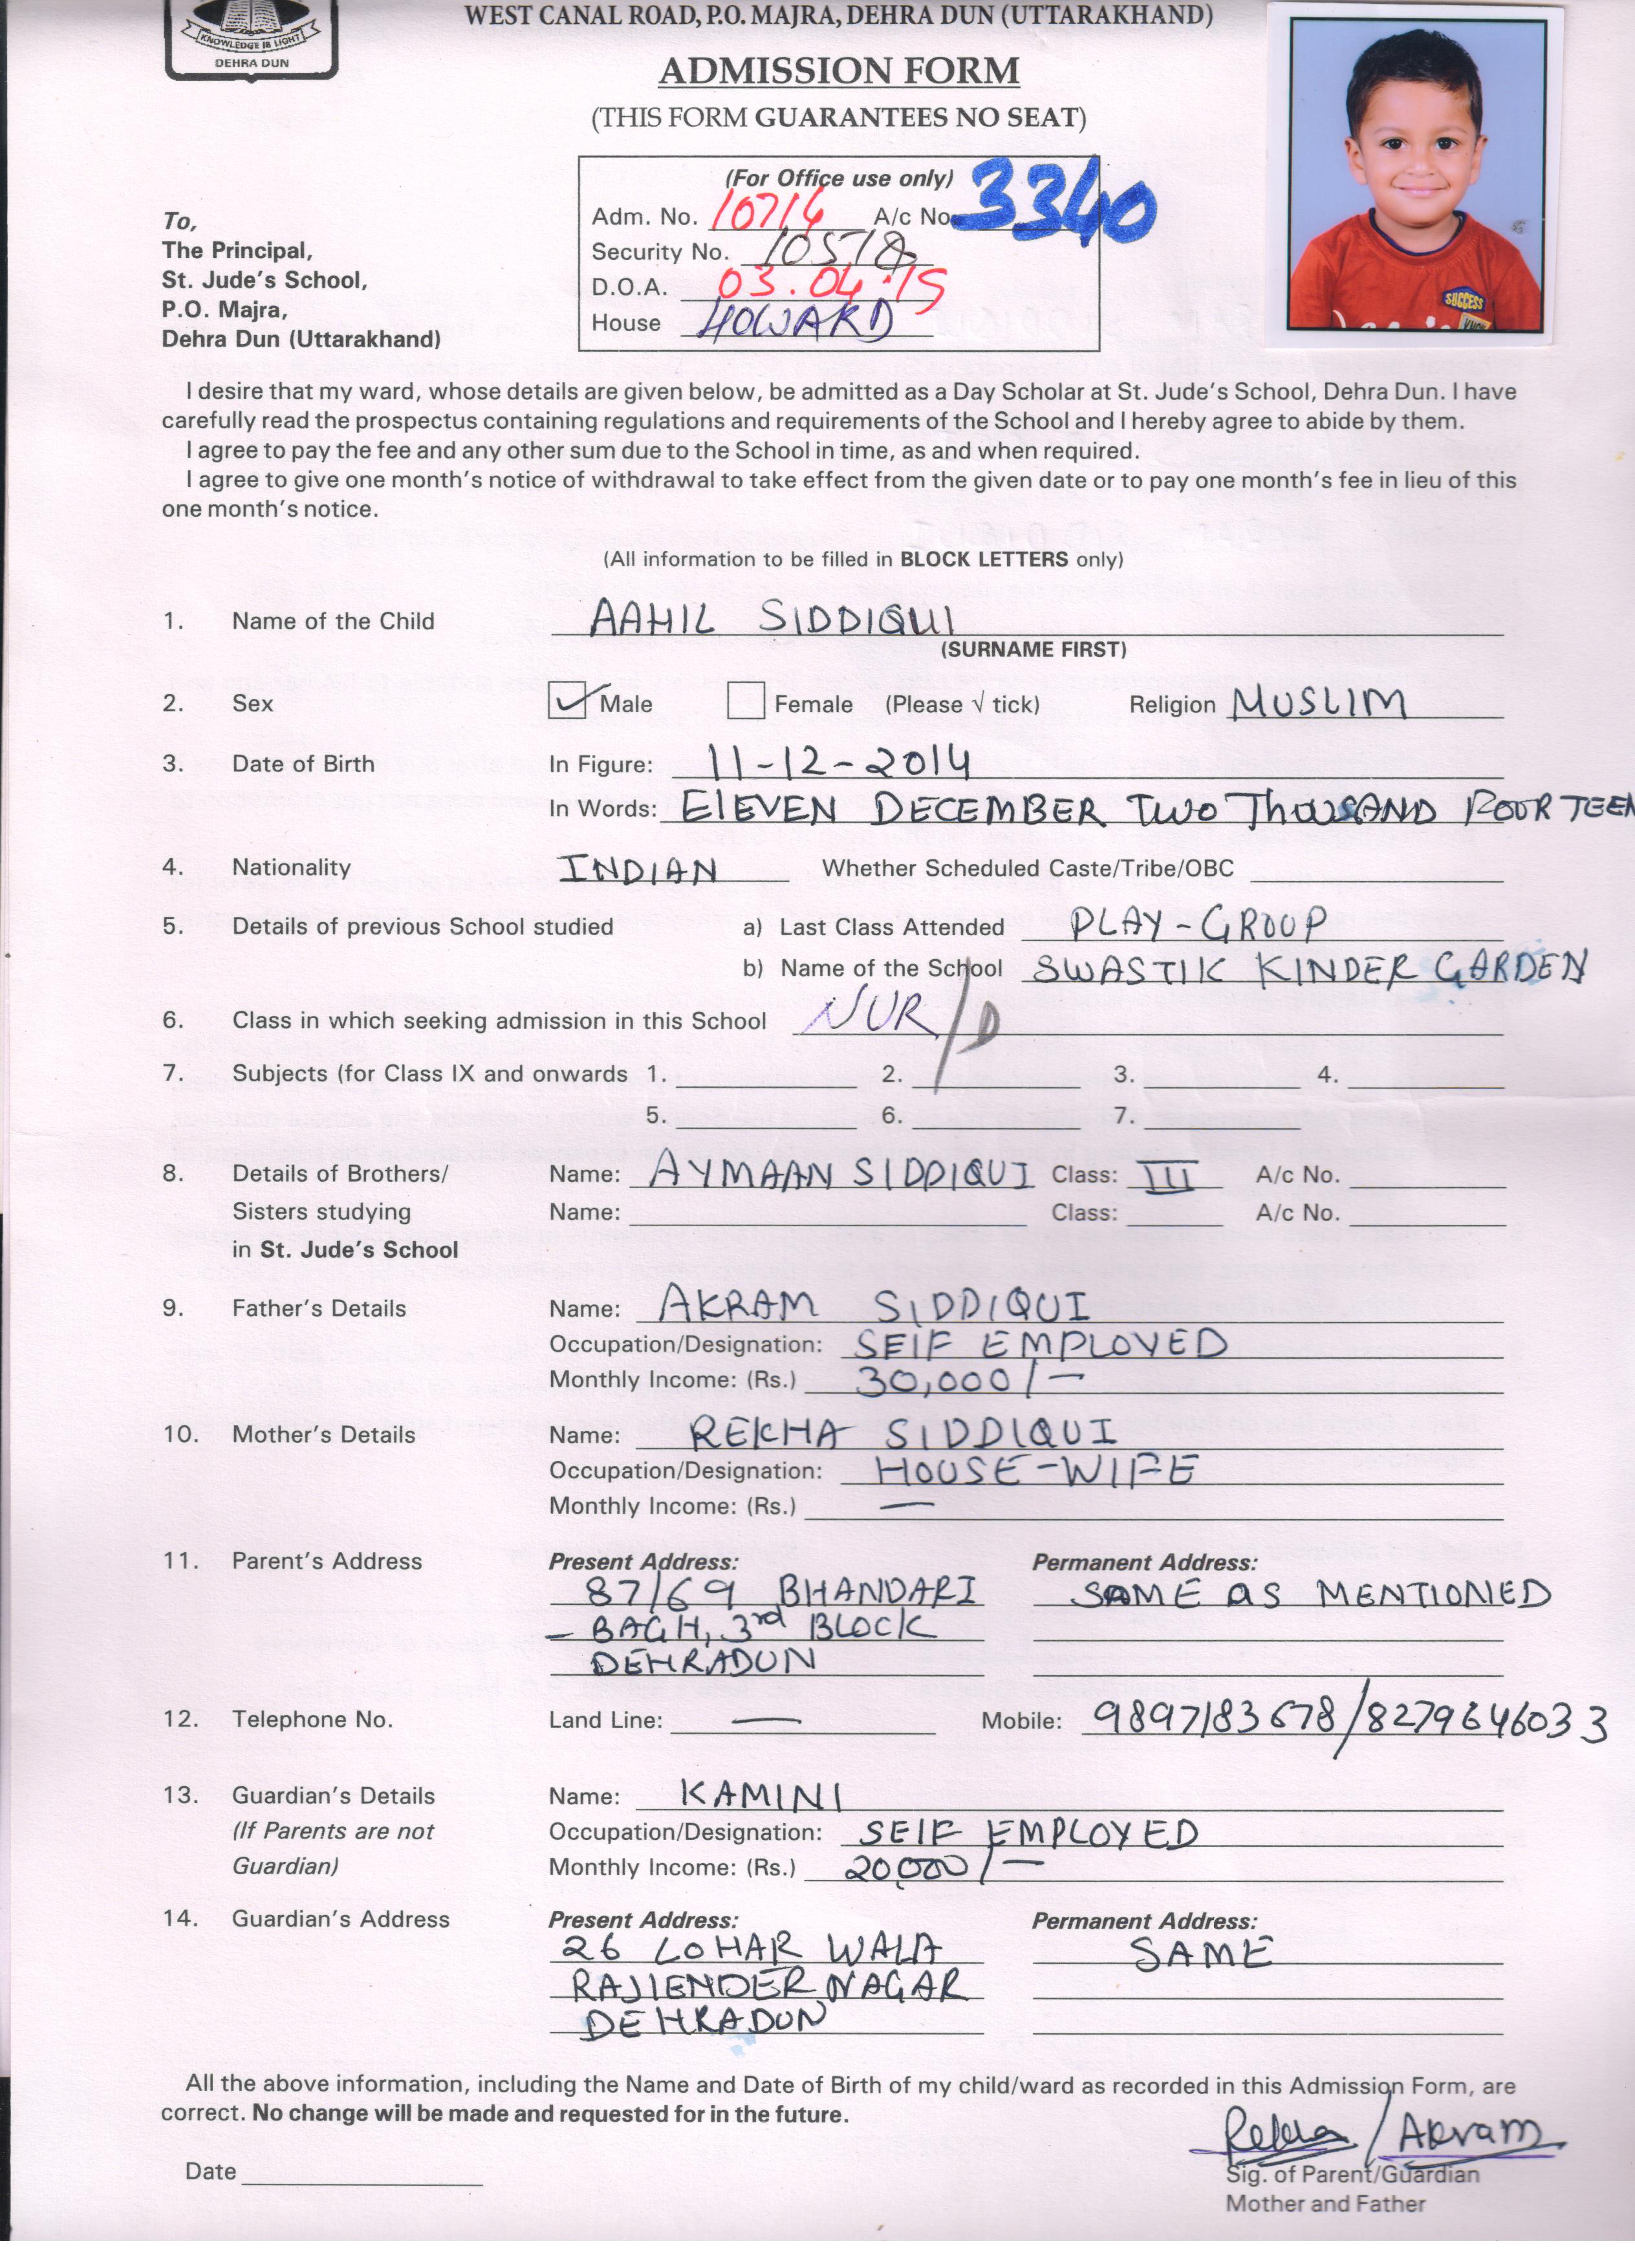 KNOWLEDGE IS LIGHT
DEHRA DUN
WEST CANAL ROAD, P.O. MAJRA, DEHRA DUN (UTTARAKHAND)
ADMISSION FORM
(THIS FORM GUARANTEES NO SEAT)
(For Office use only)
Adm. No. 10714 A/c No. 3340
Security No. 10518
D.O.A. 03.04.19
House HOWARD
To,
The Principal,
St. Jude's School,
P.O. Majra,
Dehra Dun (Uttarakhand)
SUCCESS
I desire that my ward, whose details are given below, be admitted as a Day Scholar at St. Jude's School, Dehra Dun. I have
carefully read the prospectus containing regulations and requirements of the School and I hereby agree to abide by them.
I agree to pay the fee and any other sum due to the School in time, as and when required.
I agree to give one month's notice of withdrawal to take effect from the given date or to pay one month's fee in lieu of this
one month's notice.
(All information to be filled in BLOCK LETTERS only)
1. Name of the Child AAHIL SIDDIQUI
(SURNAME FIRST)
2. Sex Male Female (Please √ tick) Religion MUSLIM
3. Date of Birth In Figure: 11-12-2014
In Words: ElEVEN DECEMBER Two ThouSAND FOURTEEN
4. Nationality INDIAN Whether Scheduled Caste/Tribe/OBC
5. Details of previous School studied a) Last Class Attended PLAY-GROUP
b) Name of the School SWASTIK KINDER GARDEN
6. Class in which seeking admission in this School NUR/D
7. Subjects (for Class IX and onwards 1. 2. 3. 4.
5. 6. 7.
8. Details of Brothers/ Name: AYMAAN SIDDIQUI Class: III A/c No.
Sisters studying Name: Class: A/c No.
in St. Jude's School
9. Father's Details Name: AKRAM SIDDIQUI
Occupation/Designation: SElF EMPLOYED
Monthly Income: (Rs.) 30,000/-
10. Mother's Details Name: REKHA SIDDIQUI
Occupation/Designation: HOUSE-WIFE
Monthly Income: (Rs.) —
11. Parent's Address Present Address: Permanent Address:
87/69 BHANDARI SAME AS MENTIONED
- BAGH, 3rd BLOCK
DEHRADUN
12. Telephone No. Land Line: — Mobile: 9897183678/8279646033
13. Guardian's Details Name: KAMINI
(If Parents are not Occupation/Designation: SElF EMPLOYED
Guardian) Monthly Income: (Rs.) 20,000/-
14. Guardian's Address Present Address: Permanent Address:
26 LOHAR WALA SAME
RAJIENDER NAGAR
DEHRADUN
All the above information, including the Name and Date of Birth of my child/ward as recorded in this Admission Form, are
correct. No change will be made and requested for in the future.
Rekha / Akram
Date Sig. of Parent/Guardian
Mother and Father